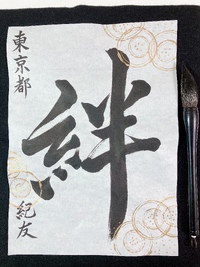 絆
東京都
紀友